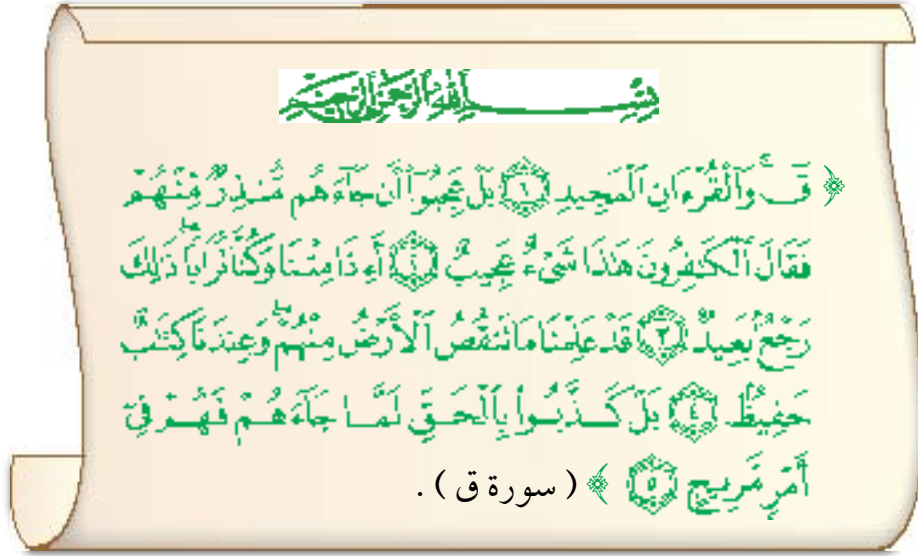 بِسْمِ اللَّهِ الرَّحْمَنِ الرَّحِيمِ
﴿ قٓ ۚ وَٱلْقُرْءَانِ ٱلْمَجِيدِ ۝١ بَلْ عَجِبُوٓا۟ أَن جَآءَهُم مُّنذِرٌ مِّنْهُمْ
فَقَالَ ٱلْكَٰفِرُونَ هَٰذَا شَىْءٌ عَجِيبٌ ۝٢ أَءِذَا مِتْنَا وَكُنَّا تُرَابًا ۖ ذَٰلِكَ
رَجْعٌۢ بَعِيدٌ ۝٣ قَدْ عَلِمْنَا مَا تَنقُصُ ٱلْأَرْضُ مِنْهُمْ ۖ وَعِندَنَا كِتَٰبٌ
حَفِيظٌۢ ۝٤ بَلْ كَذَّبُوا۟ بِٱلْحَقِّ لَمَّا جَآءَهُمْ فَهُمْ فِىٓ
أَمْرٍ مَّرِيجٍ ۝٥ ﴾ ( سورة ق ) .